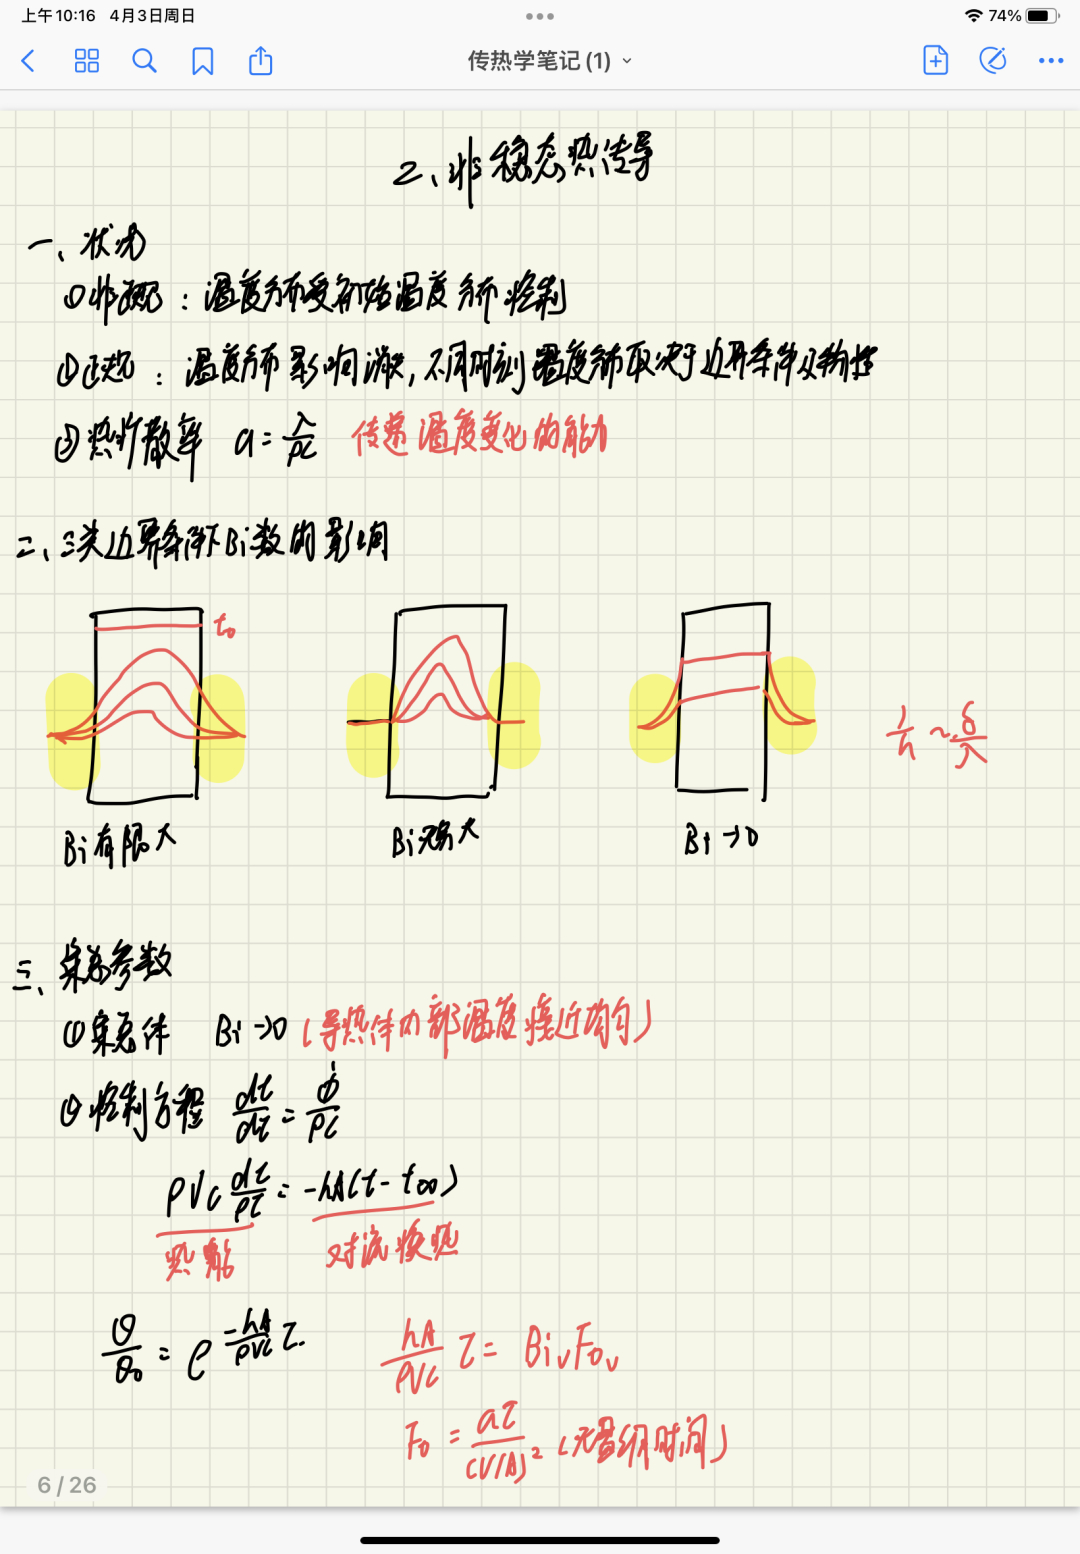 上午10:16 4月3日周日
74%
传热学笔记 (1)
2、非稳态热传导
一、状况
①非正规：温度分布受初始温度分布控制
②正规：温度分布影响消失，不同时刻温度分布取决于边界条件及物性
③热扩散率 a = λ/ρc 传递温度变化的能力
二、三类边界条件下Bi数的影响
t₀
1/h ~ δ/λ
Bi有限大
Bi无穷大
Bi→0
三、集总参数
①集总体 Bi→0 (导热体内部温度接近均匀)
②控制方程 dt/dτ = Φ̇/ρc
ρVc dt/ρτ = -hA(t - t∞)
热能
对流换热
θ/θ₀ = e^(-hA/ρVc τ)
hA/ρVc τ = BiᵥFoᵥ
Fo = aτ/(V/A)² (无量纲时间)
6 / 26